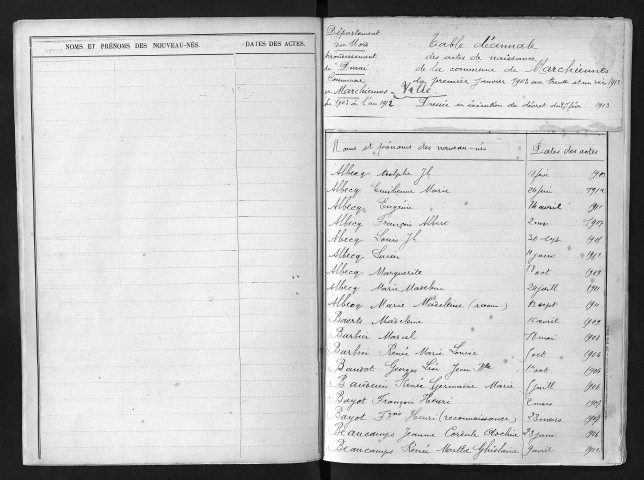 NOMS ET PRÉNOMS DES NOUVEAU-NÉS.
DATES DES ACTES.
Département
du Nord
Arrondissement
de Douai
Commune
de Marchiennes - Ville
de 1903 à l'an 1912
Table décennale
des actes de naissance
de la commune de Marchiennes
du premier Janvier 1903 au trente et un 1912
Dressée en exécution du décret 1913
Noms et prénoms des nouveau-nés
Dates des actes
Albecq Adolphe Jh
Albecq Emilienne Marie 1912
Albecq Eugénie 14 avril 1911
Albecq François Albert 2 1907
Albecq Louis Jh 30
Albecq Lucien
Albecq Marguerite 18 oct 1909
Albecq Marie Madeleine 24 juill 1911
Albecq Marie Madeleine (reconn.) 13 sept 1911
Baerts Madeleine 15 avril 1909
Barbier Marcel 18 mai 1903
Barbin Renée Marie Louise oct 1906
Bauvot Georges Léon Jean Bte 1 oct 1904
Bauduin Renée Germaine Marie juill 1906
Bayot François Henri 2 mars 1907
Bayot Fçois Henri (reconnaissance) 23 mars 1907
Beaucamps Jeanne 23 janv 1906
Beaucamps Renée Marthe Ghislaine 9 avril